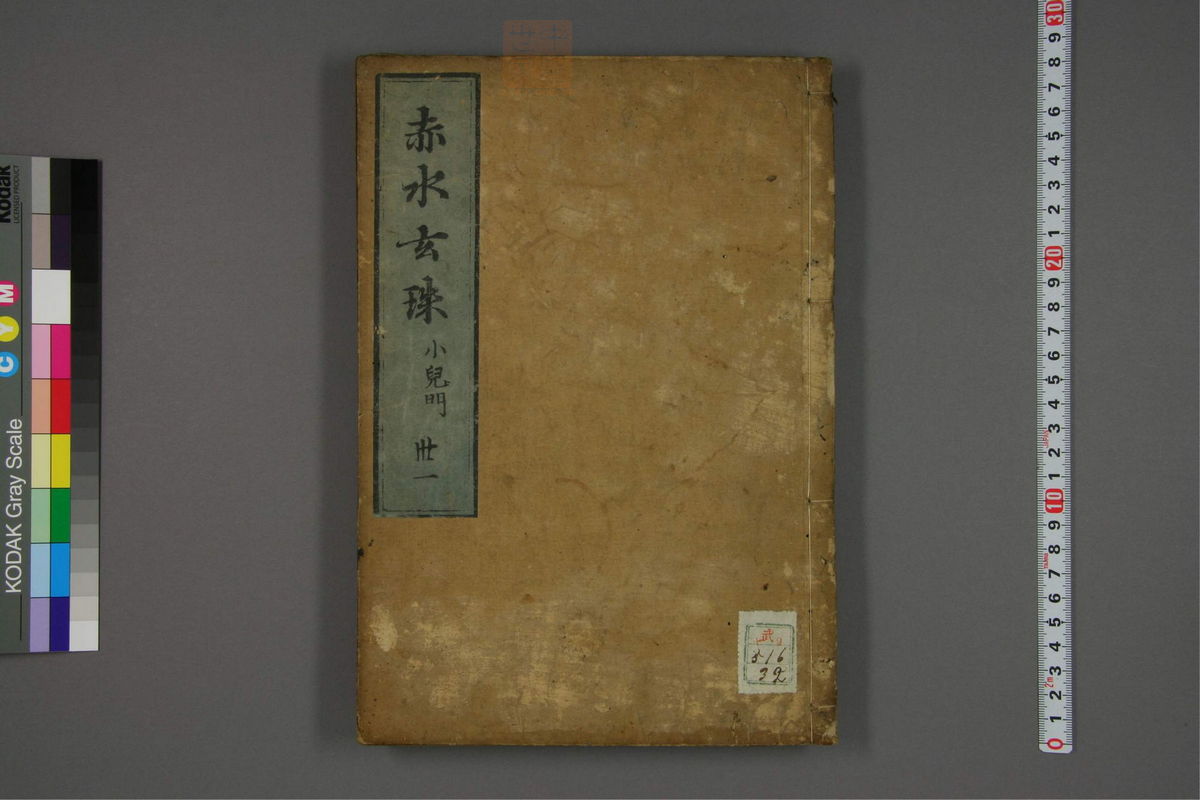 赤水玄珠 小兒門 卅一
武
516
32
Kodak
LICENSED PRODUCT
KODAK Gray Scale
C Y M
30
9
8
7
6
5
4
3
2
1
20
9
8
7
6
5
4
3
2
1
10
9
8
7
6
5
4
3
2m
2
1
0